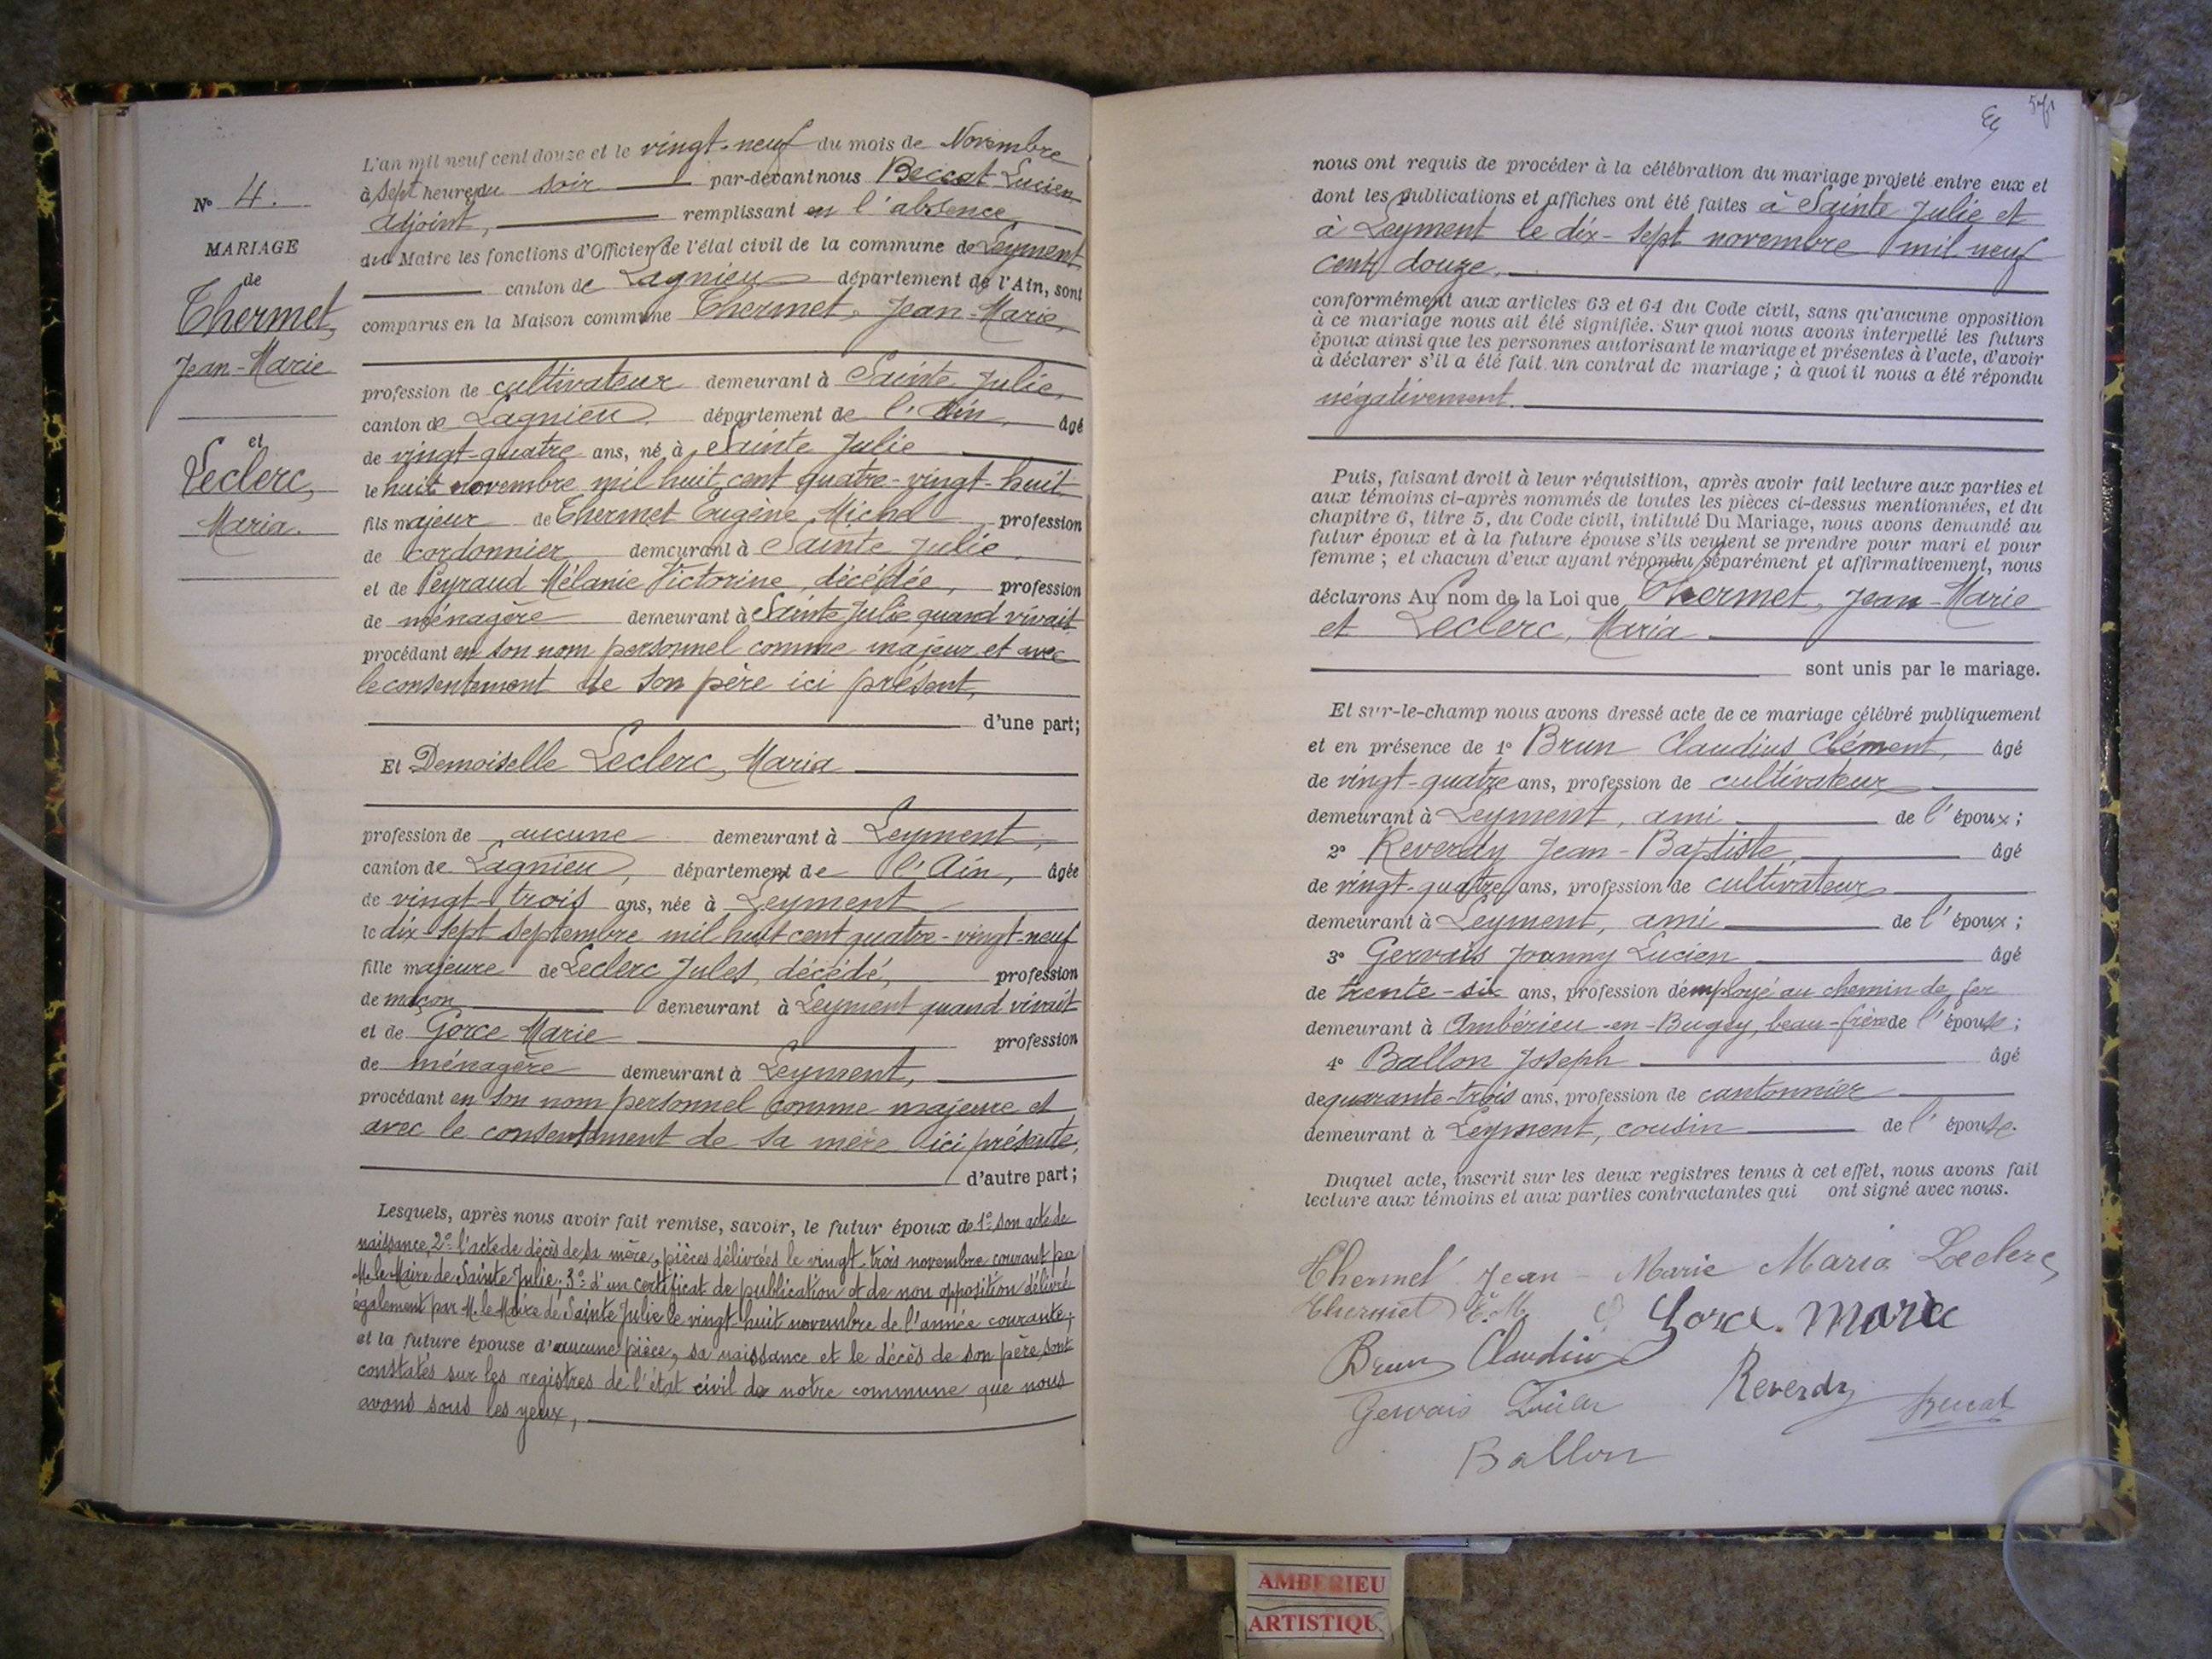 N° 4.
MARIAGE
de
Thermet,
Jean-Marie
et
Leclerc,
Maria.
L'an mil neuf cent douze et le vingt-neuf du mois de Novembre
à sept heures du soir par-devant nous Beccat Lucien
adjoint, remplissant en l'absence
du Maire les fonctions d'Officier de l'état civil de la commune de Leyment
canton de Lagnieu département de l'Ain, sont
comparus en la Maison commune Thermet, Jean-Marie,
profession de cultivateur demeurant à Sainte Julie,
canton de Lagnieu département de l'Ain, âgé
de vingt-quatre ans, né à Sainte Julie
le huit novembre mil huit cent quatre-vingt-huit
fils majeur de Thermet Eugène Michel profession
de cordonnier demeurant à Sainte Julie.
et de Peyraud Mélanie Victorine, décédée, profession
de ménagère demeurant à Sainte Julie quand vivait
procédant en son nom personnel comme majeur et avec
le consentement de son père ici présent,
d'une part;
Et Demoiselle Leclerc, Maria
profession de aucune demeurant à Leyment,
canton de Lagnieu, département de l'Ain, âgée
de vingt-trois ans, née à Leyment
le dix-sept septembre mil huit cent quatre-vingt-neuf
fille majeure de Leclerc Jules, décédé, profession
de maçon demeurant à Leyment quand vivait
et de Gorce Marie profession
de ménagère demeurant à Leyment,
procédant en son nom personnel comme majeure et
avec le consentement de sa mère ici présente,
d'autre part;
Lesquels, après nous avoir fait remise, savoir, le futur époux de 1° son acte de
naissance, 2° l'acte de décès de sa mère, pièces délivrées le vingt-trois novembre courant par
M. le Maire de Sainte Julie; 3° d'un certificat de publication et de non opposition délivré
également par M. le Maire de Sainte Julie le vingt-huit novembre de l'année courante;
et la future épouse d'aucune pièce, sa naissance et le décès de son père, sont
constatés sur les registres de l'état civil de notre commune que nous
avons sous les yeux,
nous ont requis de procéder à la célébration du mariage projeté entre eux et
dont les publications et affiches ont été faites à Sainte Julie et
à Leyment le dix-sept novembre mil neuf
cent douze.
conformément aux articles 63 et 64 du Code civil, sans qu'aucune opposition
à ce mariage nous ait été signifiée. Sur quoi nous avons interpellé les futurs
époux ainsi que les personnes autorisant le mariage et présentes à l'acte, d'avoir
à déclarer s'il a été fait un contrat de mariage; à quoi il nous a été répondu
négativement.
Puis, faisant droit à leur réquisition, après avoir fait lecture aux parties et
aux témoins ci-après nommés de toutes les pièces ci-dessus mentionnées, et du
chapitre 6, titre 5, du Code civil, intitulé Du Mariage, nous avons demandé au
futur époux et à la future épouse s'ils veulent se prendre pour mari et pour
femme; et chacun d'eux ayant répondu séparément et affirmativement, nous
déclarons Au nom de la Loi que Thermet, Jean-Marie
et Leclerc, Maria
sont unis par le mariage.
Et sur-le-champ nous avons dressé acte de ce mariage célébré publiquement
et en présence de 1° Brun Claudius Clément, âgé
de vingt-quatre ans, profession de cultivateur
demeurant à Leyment, ami de l'époux;
2° Reverdy Jean-Baptiste, âgé
de vingt-quatre ans, profession de cultivateur
demeurant à Leyment, ami de l'époux;
3° Gervais Joanny Lucien âgé
de trente-six ans, profession d'employé au chemin de fer
demeurant à Ambérieu-en-Bugey, beau-frère de l'épouse;
4° Ballon Joseph âgé
de quarante-trois ans, profession de cantonnier
demeurant à Leyment, cousin de l'épouse.
Duquel acte, inscrit sur les deux registres tenus à cet effet, nous avons fait
lecture aux témoins et aux parties contractantes qui ont signé avec nous.
Thermet Jean-Marie Maria Leclerc
Thermet E. M. Gorce Marie
Brun Claudius
Reverdy Beccat
Gervais
Ballon
AMBERIEU
ARTISTIQU